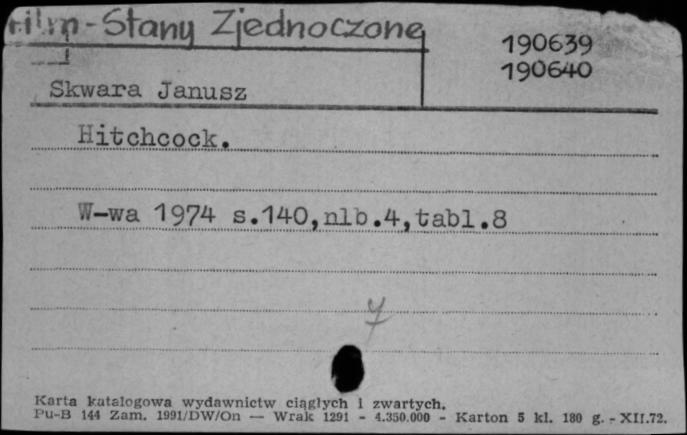 Film - Stany Zjednoczone
190639
190640
Skwara Janusz
Hitchcock.
W-wa 1974 s.140,nlb.4,tabl.8
7
Karta katalogowa wydawnictw ciągłych i zwartych.
Pu-B 144 Zam. 1991/DW/On — Wrak 1291 - 4.350.000 - Karton 5 kl. 180 g. - XII.72.